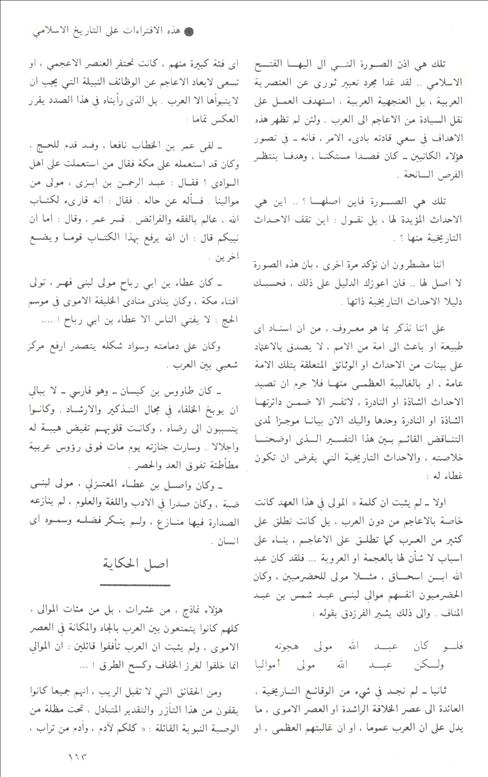 هذه الافتراءات على التاريخ الاسلامي
تلك هي اذن الصورة التي آل اليها الفتح
الاسلامي .. لقد غدا مجرد تعبير ثوري عن العنصرية
العربية ، بل العنجهية العربية . استهدف العمل على
نقل السيادة من الاعاجم الى العرب . ولئن لم تظهر هذه
الاهداف في سعي قادته بادىء الامر ، فانه ـ في تصور
هؤلاء الكاتبين ـ كان قصدا مستكنا ، وهدفا ينتظر
الفرص السانحة .
تلك هي الصورة فاين اصلها ؟ .. اين هي
الاحداث المؤيدة لها ، بل نقول : اين تقف الاحداث
التاريخية منها ؟ .
اننا مضطرون ان نؤكد مرة اخرى ، بان هذه الصورة
لا اصل لها .. فان اعوزك الدليل على ذلك ، فحسبك
دليلا الاحداث التاريخية ذاتها .
على اننا نذكر بما هو معروف ، من ان اسناد اى
طبيعة او باعث الى امة من الامم ، لا يصدق بالاعتماد
على بينات من الاحداث او الوثائق المتعلقة بتلك الامة
عامة ، او بالغالبية العظمى منها فلا جرم ان تصيد
الاحداث الشاذة او النادرة ، لاتفسر الا ضمن دائرتها
الشاذة او النادرة وحدها واليك الان بيانا موجزا لمدى
التناقض القائم بين هذا التفسير الذى اوضحنا
خلاصته ، والاحداث التاريخية التي يفرض ان تكون
غطاء له :
اولا ـ لم يثبت ان كلمة « المولى في هذا العهد كانت
خاصة بالاعاجم من دون العرب ، بل كانت تطلق على
كثير من العرب كما تطلق على الاعاجم ، بناء على
اسباب لا شأن لها بالعجمة او العروبة ... فلقد كان عبد
الله ابن اسحاق ، مثلا مولى للحضرميين ، وكان
الحضرميون انفسهم موالي لبنى عبد شمس بن عبد
المناف . والى ذلك يشير الفرزدق بقوله :
فلو كان عبد الله مولى هجوته
ولكن عبد الله مولى أمواليا
ثانيا ـ لم نجد في شيء من الوقائع التاريخية ،
العائدة الى عصر الخلافة الراشدة او العصر الاموى ، ما
يدل على ان العرب عموما ، او ان غالبيتهم العظمى ، او
اى فئة كبيرة منهم ، كانت تحتقر العنصر الاعجمي ، او
تسعى لابعاد الاعاجم عن الوظائف النبيلة التي يجب ان
لا يتبوأها الا العرب . بل الذى رأيناه في هذا الصدد يقرر
العكس تماما :
ـ لقى عمر بن الخطاب نافعا ، وقد قدم للحج ،
وكان قد استعمله على مكة فقال من استعملت على اهل
الوادى ؟ فقال : عبد الرحمن بن ابزى ، مولى من
موالينا . فسأله عن حاله . فقال : انه قارىء لكتاب
الله ، عالم بالفقه والفرائض . فسر عمر ، وقال : اما ان
نبيكم قال : ان الله يرفع بهذا الكتاب قوما ويضع
اخرين .
ـ كان عطاء بن ابي رباح مولى لبنى فهر ، تولى
افتاء مكة ، وكان ينادى منادى الخليفة الاموى في موسم
الحج : لا يفتي الناس الا عطاء بن ابي رباح ! ....
وكان على دمامته وسواد شكله يتصدر ارفع مركز
شعبي بين العرب .
ـ كان طاووس بن كيسان ـ وهو فارسي ـ لا يبالي
ان يوبخ الخلفاء في مجال التذكير والارشاد . وكانوا
يتسببون الى رضاه ، وكانت قلوبهم تفيض هيبة له
واجلالا . وسارت جنازته يوم مات فوق رؤوس عربية
مطأطئة تفوق العد والحصر .
ـ وكان واصل بن عطاء المعتزلي ، مولى لبنى
ضبة ، وكان صدرا في الادب واللغة والعلوم ، لم ينازعه
الصدارة فيها منازع ، ولم يتنكر فضله وسموه اى
انسان .
اصل الحكاية
هؤلاء نماذج ، من عشرات ، بل من مئات الموالى ،
كلهم كانوا يتمتعون بين العرب بالجاه والمكانة في العصر
الاموى ، ولم يثبت ان العرب تأففوا قائلين : ان الموالي
انما خلقوا لغرز الخفاف وكسح الطرق ! ...
ومن الحقائق التي لا تقبل الريب ، انهم جميعا كانوا
يقفون من هذا التآزر والتقدير المتبادل ، تحت مظلة من
الوصية النبوية القائلة : « كلكم لآدم ، وآدم من تراب ،
١٦٣